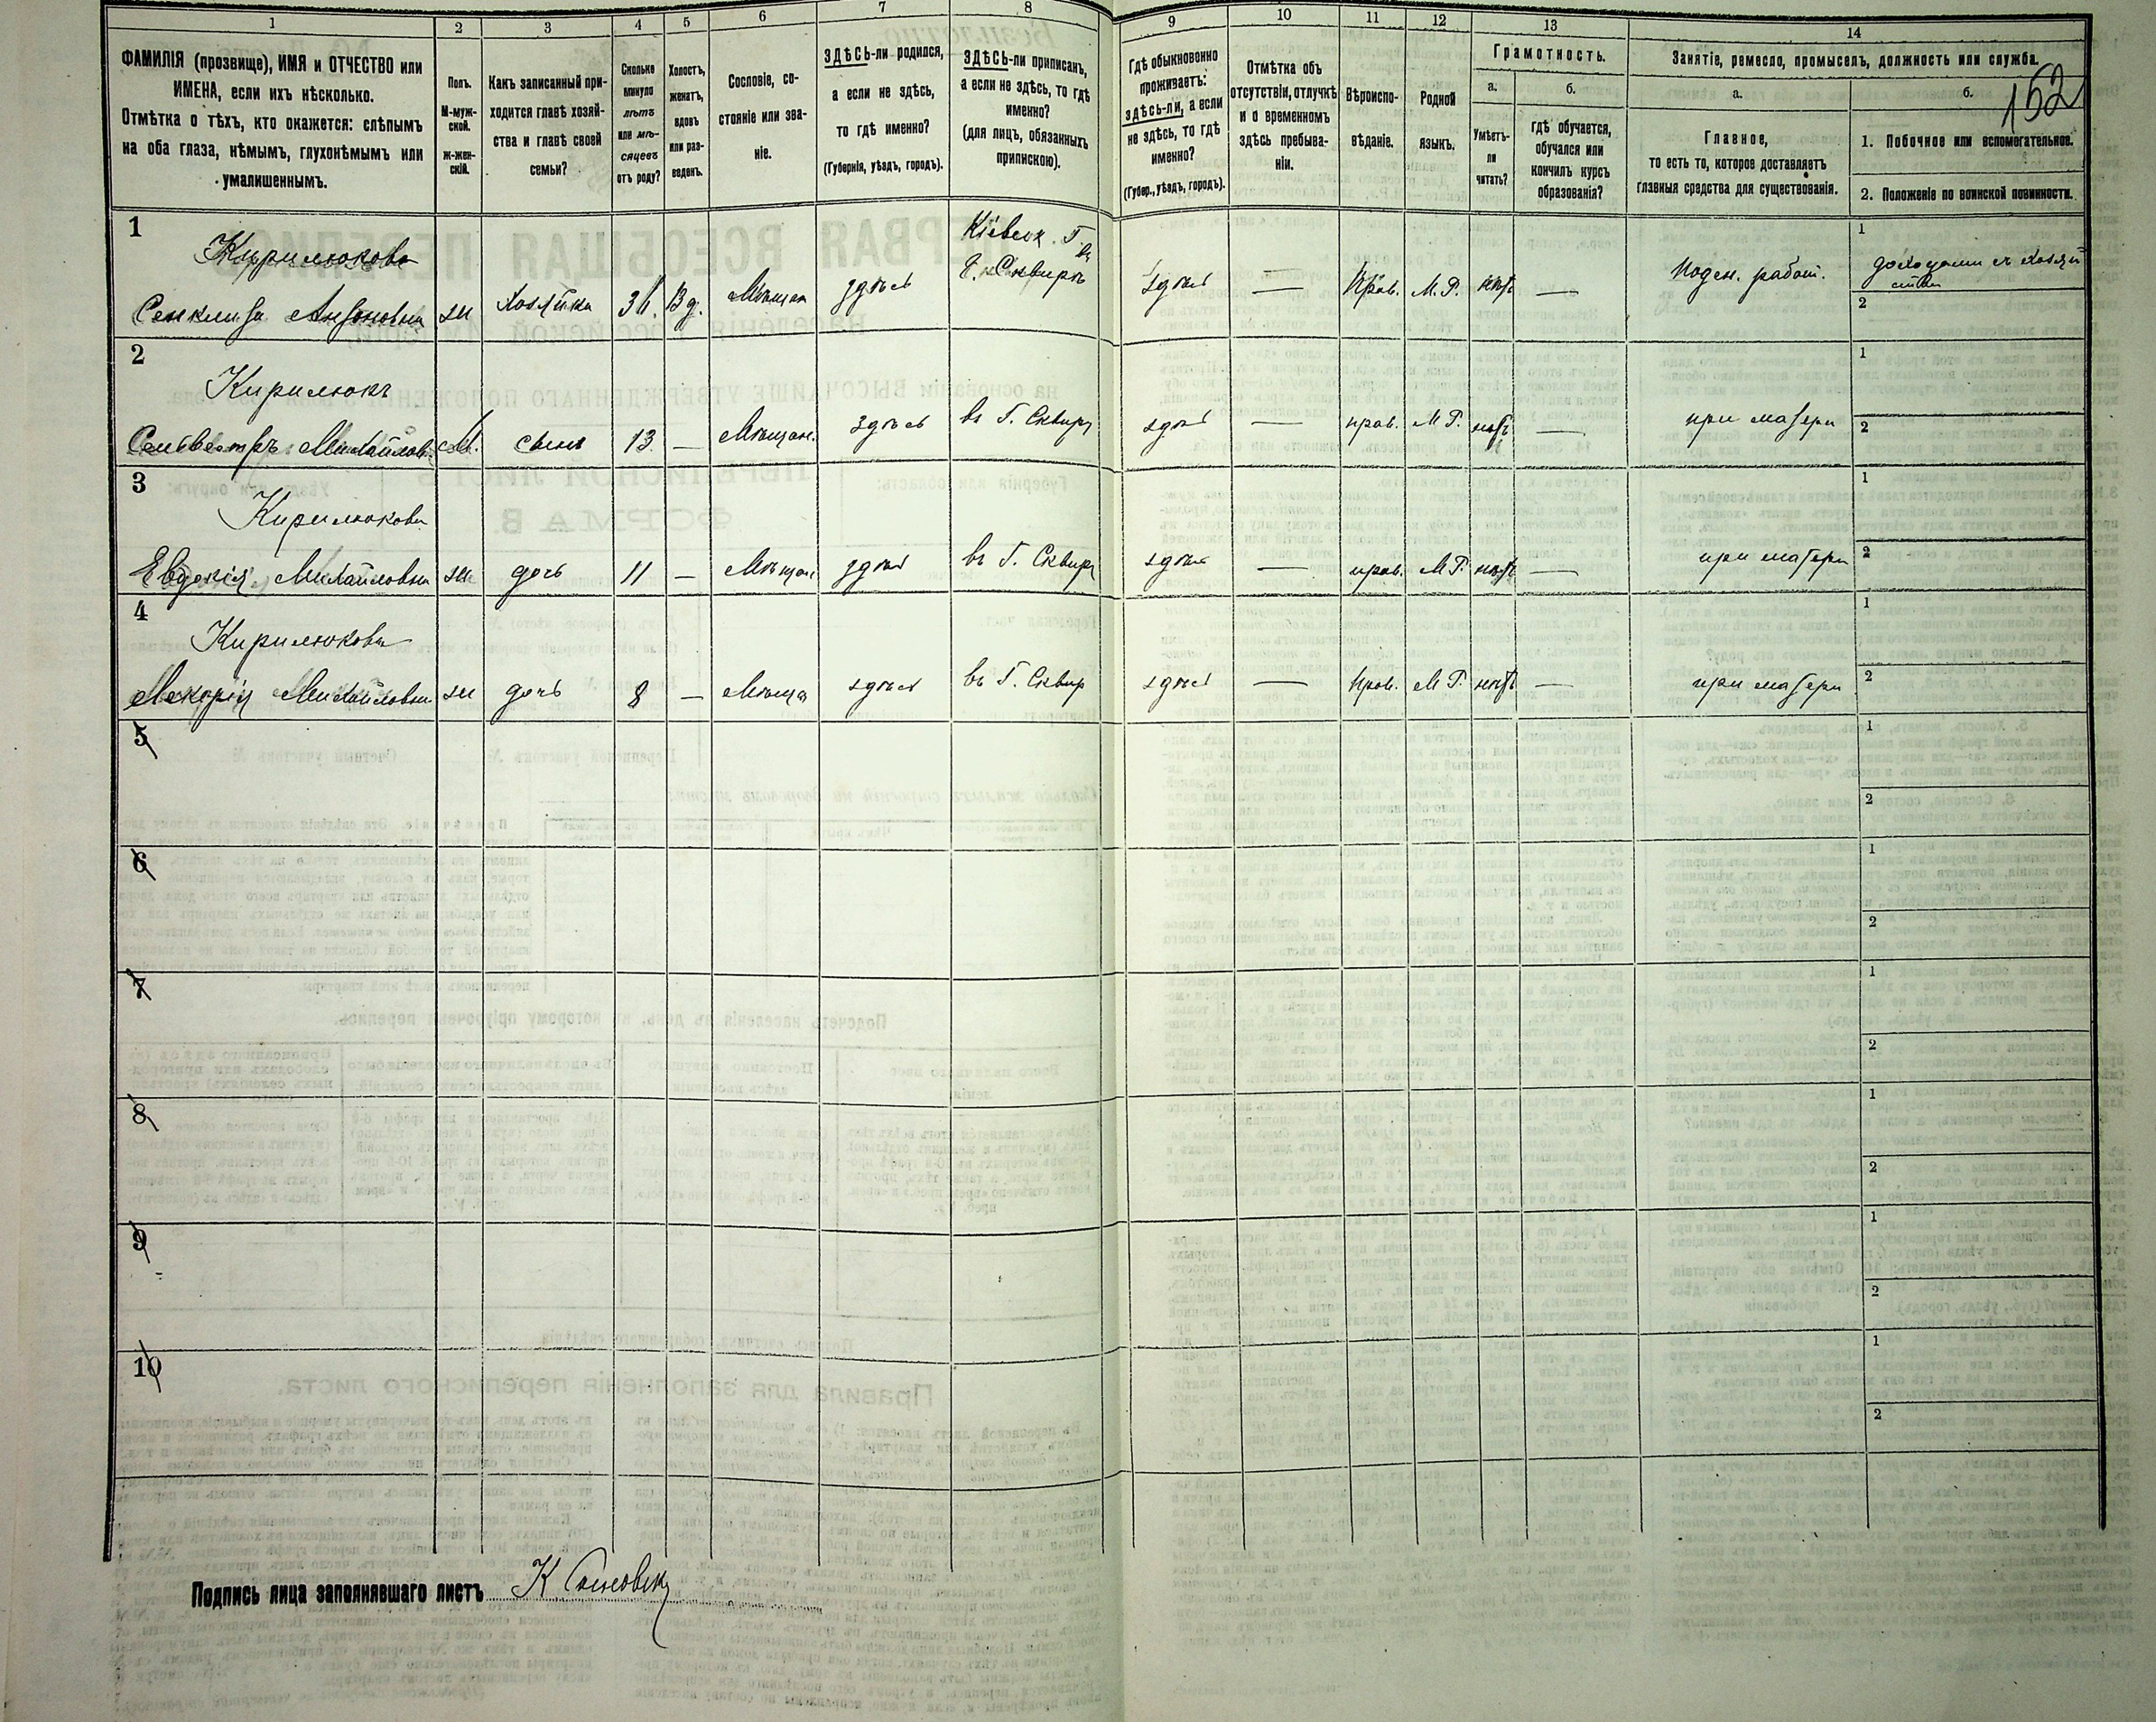 1 2 3 4 5 6 7 8 9 10 11 12 13 14
ФАМИЛІЯ (прозвище), ИМЯ и ОТЧЕСТВО или
ИМЕНА, если ихъ нѣсколько.
Отмѣтка о тѣхъ, кто окажется: слѣпымъ
на оба глаза, нѣмымъ, глухонѣмымъ или
умалишеннымъ.
Полъ.
М-муж-
ской.
ж-жен-
скій.
Какъ записанный при-
ходится главѣ хозяй-
ства и главѣ своей
семьи?
Сколько
минуло
лѣтъ
или мѣ-
сяцевъ
отъ роду?
Холостъ,
женатъ,
вдовъ
или раз-
веденъ.
Сословіе, со-
стояніе или зва-
ніе.
ЗДѢСЬ-ли родился,
а если не здѣсь,
то гдѣ именно?
(Губернія, уѣздъ, городъ).
ЗДѢСЬ-ли приписанъ,
а если не здѣсь, то гдѣ
именно?
(для лицъ, обязанныхъ
припискою).
Гдѣ обыкновенно
проживаетъ:
здѣсь-ли, а если
не здѣсь, то гдѣ
именно?
(Губер., уѣздъ, городъ).
Отмѣтка объ
отсутствіи, отлучкѣ
и о временномъ
здѣсь пребыва-
ніи.
Вѣроиспо-
вѣданіе.
Родной
языкъ.
Грамотность.
а.
Умѣетъ-
ли
читать?
б.
гдѣ обучается,
обучался или
кончилъ курсъ
образованія?
Занятіе, ремесло, промыселъ, должность или служба.
152
а.
Главное,
то есть то, которое доставляетъ
главныя средства для существованія.
б.
1. Побочное или вспомогательное.
2. Положеніе по воинской повинности.
1
Кирилюкова
Антоновна
ж
хозяйка
36.
вд.
Мѣщан
здѣсь
Кіевск. Г.
въ
г. Сквирѣ
здѣсь
—
Прав.
М. Р.
нѣтъ
—
Поден. работ.
1
2
2
Кирилюкъ
Сильвестръ Михайлов.
М.
сынъ
13
—
Мѣщан.
здѣсь
въ Г. Сквирѣ
здѣсь
—
прав.
М Р.
нѣтъ
—
при матери
1
2
3
Кирилюкова
Евдокія Михайловна
ж
дочь
11
—
Мѣщан
здѣсь
въ Г. Сквирѣ
здѣсь
—
прав.
М Р.
нѣтъ
—
при матери
1
2
4
Кирилюкова
Михайловна
ж
дочь
8
—
Мѣщан
здѣсь
въ Г. Сквир
здѣсь
—
Прав.
М Р.
нѣтъ
—
при матери
1
2
5
1
2
6
1
2
7
1
2
8
1
2
9
1
2
10
1
2
Подпись лица заполнявшаго листъ